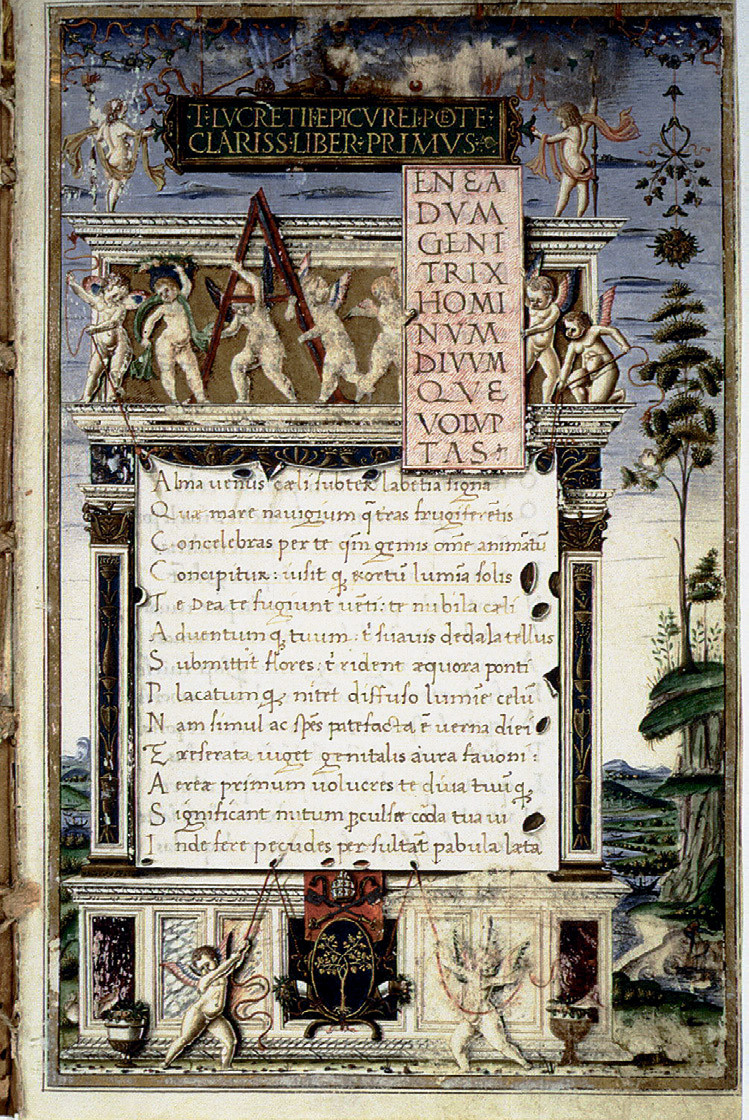 T·LVCRETII·EPICVREI·POETE·
CLARISS·LIBER·PRIMVS·
A
ENEA
DVM
GENI
TRIX
HOMI
NVM
DIVVM
QVE
VOLVP
TAS
Alma uenus cæli subter labētia signa
Quæ mare nauigium q̃ tras frugiferētis
Concelebras per te qm̄ genus om̄e animātū
Concipitur: uisit q̨ exortū lumīa solis
Te Dea te fugiunt uēti: te nubila cæli
Aduentum q̨ tuum: t̄ suauis dedala tellus
Submittit flores: t̄ rident æquora ponti
Placatum q̨ nitet diffuso lumīe celū
Nam simul ac spēs patefacta ē uerna diei
Et reserata uiget genitalis aura fauoni:
Aereæ primum uolucres te diua tuū q̨
Significant nutum ꝑculsæ corda tua ui
Inde fere pecudes per sultāt pabula læta